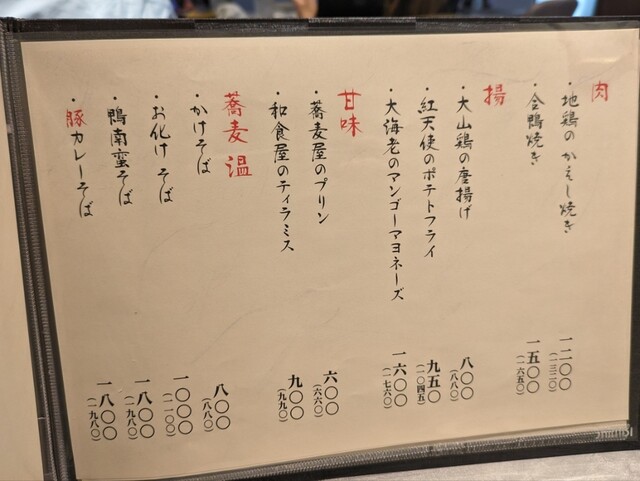 肉
・地鶏のかえし焼き 一二〇〇 (一三二〇)
・合鴨焼き 一五〇〇 (一六五〇)
揚
・大山鶏の唐揚げ 八〇〇 (八八〇)
・紅天使のポテトフライ 九五〇 (一〇四五)
・大海老のマンゴーマヨネーズ 一六〇〇 (一七六〇)
甘味
・蕎麦屋のプリン 六〇〇 (六六〇)
・和食屋のティラミス 九〇〇 (九九〇)
蕎麦 温
・かけそば 八〇〇 (八八〇)
・お化けそば 一〇〇〇 (一一〇〇)
・鴨南蛮そば 一八〇〇 (一九八〇)
・豚カレーそば 一八〇〇 (一九八〇)